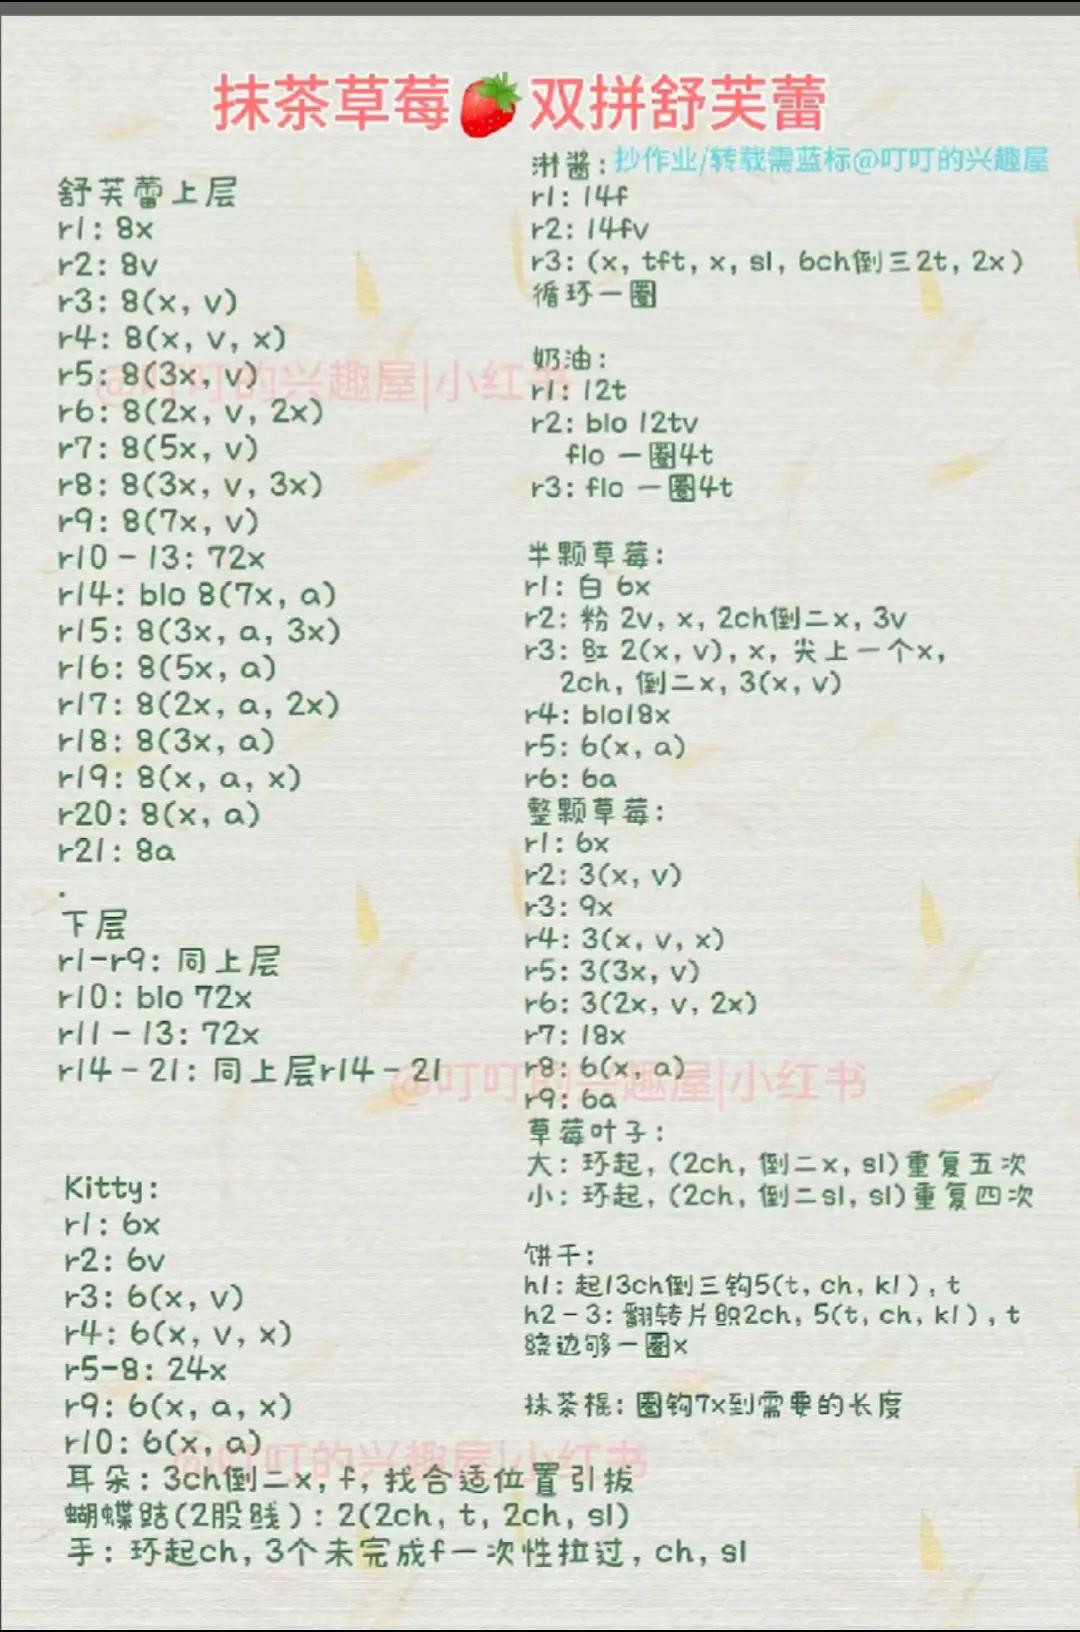 抹茶草莓🍓双拼舒芙蕾
抄作业/转载需蓝标@叮叮的兴趣屋
舒芙蕾上层
r1: 8x
r2: 8v
r3: 8(x, v)
r4: 8(x, v, x)
r5: 8(3x, v)
r6: 8(2x, v, 2x)
r7: 8(5x, v)
r8: 8(3x, v, 3x)
r9: 8(7x, v)
r10-13: 72x
r14: blo 8(7x, a)
r15: 8(3x, a, 3x)
r16: 8(5x, a)
r17: 8(2x, a, 2x)
r18: 8(3x, a)
r19: 8(x, a, x)
r20: 8(x, a)
r21: 8a
.
下层
r1-r9: 同上层
r10: blo 72x
r11-13: 72x
r14-21: 同上层r14-21
Kitty:
r1: 6x
r2: 6v
r3: 6(x, v)
r4: 6(x, v, x)
r5-8: 24x
r9: 6(x, a, x)
r10: 6(x, a)
耳朵: 3ch倒二x, f, 找合适位置引拔
蝴蝶结(2股线): 2(2ch, t, 2ch, sl)
手: 环起ch, 3个未完成f一次性拉过, ch, sl
淋酱:
r1: 14f
r2: 14fv
r3: (x, tft, x, sl, 6ch倒三2t, 2x)
循环一圈
奶油:
r1: 12t
r2: blo 12tv
flo 一圈4t
r3: flo 一圈4t
半颗草莓:
r1: 白 6x
r2: 粉 2v, x, 2ch倒二x, 3v
r3: 红 2(x, v), x, 尖上一个x,
2ch, 倒二x, 3(x, v)
r4: blo18x
r5: 6(x, a)
r6: 6a
整颗草莓:
r1: 6x
r2: 3(x, v)
r3: 9x
r4: 3(x, v, x)
r5: 3(3x, v)
r6: 3(2x, v, 2x)
r7: 18x
r8: 6(x, a)
r9: 6a
草莓叶子:
大: 环起, (2ch, 倒二x, sl)重复五次
小: 环起, (2ch, 倒二sl, sl)重复四次
饼干:
h1: 起13ch倒三钩5(t, ch, k1), t
h2-3: 翻转片织2ch, 5(t, ch, k1), t
绕边够一圈x
抹茶棍: 圈钩7x到需要的长度
@叮叮的兴趣屋|小红书
@叮叮的兴趣屋|小红书
@叮叮的兴趣屋|小红书